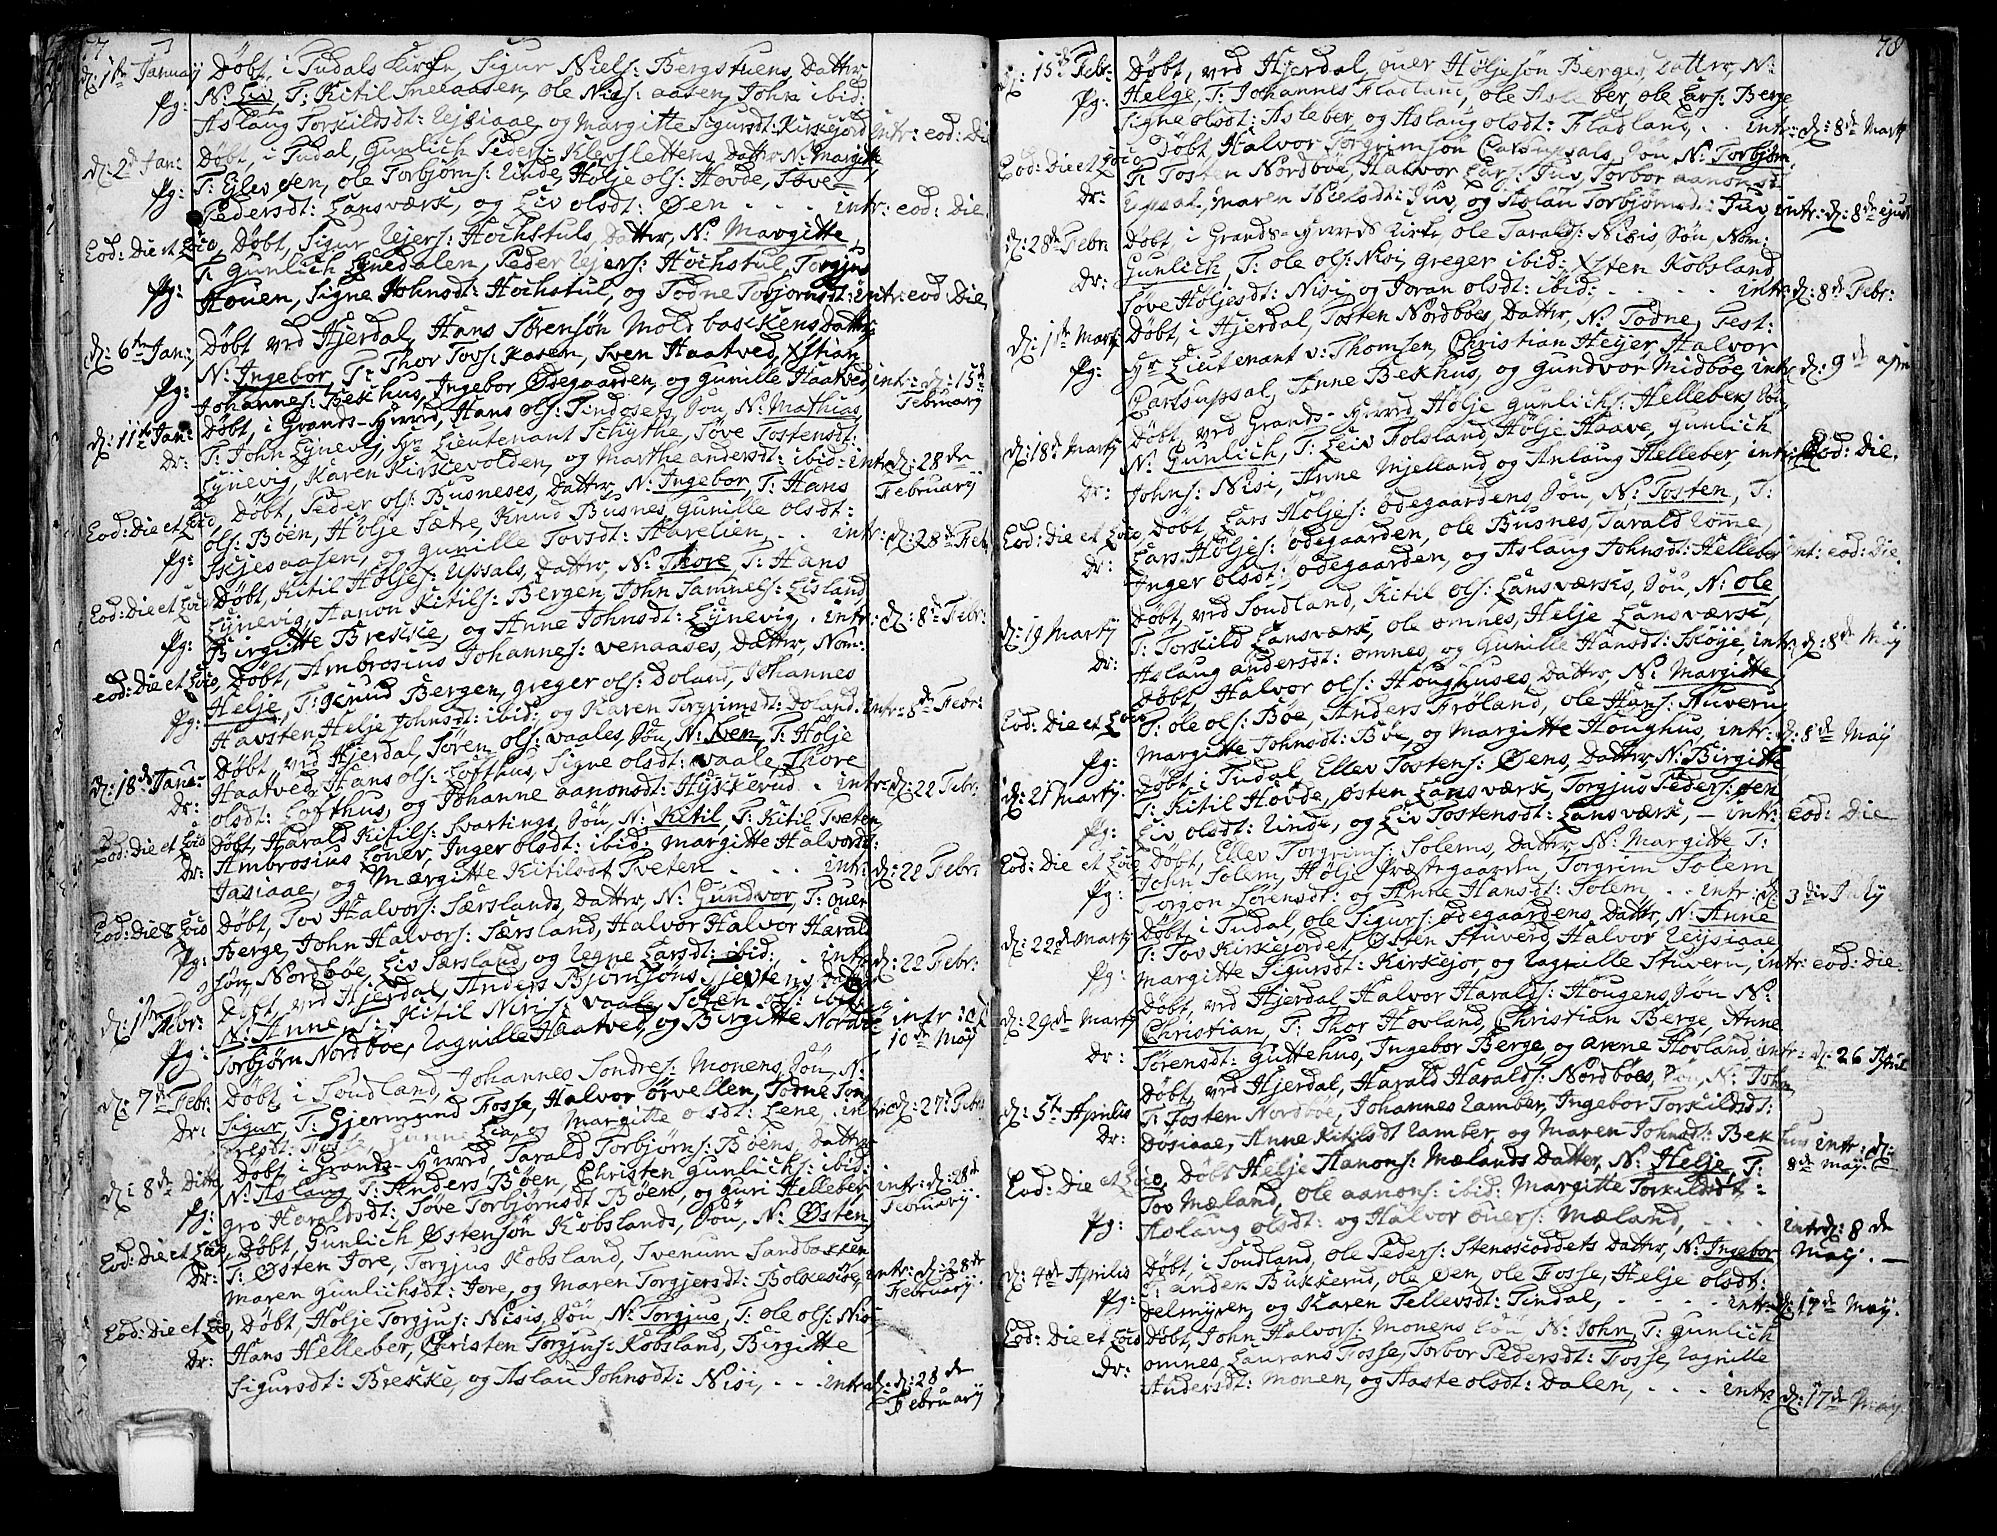 77
d: 1ste January Døbt, i Tudals Kirke, Sigur Niels: Bergstuens, Datter,
Pg: N: Liv, T: Kitil Sneaasen, ole Niels: aasen, John ibid:
Aslaug Torskildsdt: Rejsiaae, og Margitte Sigursdt: Kirkejord intr: eod: Die
d: 2de Jan: Døbt, i Tudal, Gunlich Peders: Klevslettens, Datter, N: Margitte,
Pg: T: Ejlev øen, ole Torbjørns: Linde, Holje ols: Hovde, Tove
Pedersdt: Lansværk, og Liv olsdt: Øen - - - intr: eod: Die.
Eod: Die et Loco, Døbt, Sigur Rejers: Hochstuls, Datter, N: Margitte
Pg: T: Gunlich Lynedalen, Peder Rejers: Hochstul, Torgjus
Houen, Signe Johnsdt: Hochstul, og Todne Torbjørnsdt: intr: eod: Die
d: 6te Jan: Døbt ved Hjerdal, Hans Sørensøn Moldbackens Datter
Pg: N: Ingebor, T: Thor Tovs: Kasen, Sven Haatved, Xstian
Johannes: Bekhus, Ingebor Ødegaarden, og Gunille Haatved, intr: d: 15de February
d: 11te Jan: Døbt, i Grands-Herred, Hans ols: Tindosens, Søn, N: Mathias,
Dr: T: John Lynevig, Hr Lieutenant Schythe, Søve Tostensdt:
Lynevig, Karen Kirkevolden, og Marthe andersdt: ibid: intr: d: 28de February
Eod: Die et Loco, Døbt, Peder ols: Busneses, Datter, N: Ingebor, T: Hans
Pg: ols: Bøen, Holje Sætre, Knud Busnes, Gunille olsdt:
Skjesaasen, og Gunille Tovsdt: Harelien, . . intr: d: 28de Feb
Eod: Die et Loco Døbt, Kitil Holjes: Upsals, Datter, N: Thore, T: Hans
Pg: Lynevig, Aanon Kitils: Bergen, John Samuels: Lisland,
Birgitte Brekke, og Anne Johnsdt: Lynevig . intr: d: 8de Febr:
eod: Die et Loco, Døbt, Ambrosius Johannes: venaases, Datter, Nom:
Pg: Helje, T: Knud Bergen, greger ols: Doland, Johannes
Havsten Helje Johnsdt: ibid: og Karen Torgrimsdt: Doland. intr: 8de Febr:
d: 18de Janu: Døbt ved Hjerdal, Søren ols: vaales, Søn, N: Sven, T: Holje
Dr: Haatved, Hans ols: Lofthus, Signe olsdt: vaale, Thore
olsdt: Lofthus, og Johanne aanonsdt: Hykkerud . intr: d: 22 Febr:
Eod: Die et Loco Døbt, Harald Kitils: Svartings, Søn, N: Kitil, T: Kitil Tveten
Dr: Ambrosius Loner, Inger olsdt: ibid: margitte Halvorsdt:
Jasiaae, og Margitte Kitilsdt Tveten . . . intr: d: 22 Febr:
Eod: Die & Loco Døbt, Tov Halvors: Særslands, Datter, N: Gundvor, T: ouer
Pg: Berge, John Halvors: Særsland, Halvor Halvor Harald
søn, Nordbøe, Liv Særsland, og Ragne Larsdt: ibid: . intr: d: 22 Febr:
d: 1ste Febr: Døbt, ved Hjerdal, Anders Bjørnsøns, Datter
Pg: N: Anne, T: Kitil Niris: vaale, Søren ols: ibid:
Torbjørn Nordbøe, Ragnille Haatved, og Birgitte Nordbøe intr: d: 10de May
d: 7de Febr: Døbt i Soudland, Johannes Sondres: Monens, Søn, N:
Dr: Sigur, T: Gjermund Fosse, Halvor Ørvellen, Todne Son-
dresdt: Fosse, Lia, og Margitte olsdt: Lene . intr: d: 27de Febr
d: 8de Ditto Døbt i Grands-Herred Tarald Torbjørns: Bøens, Datter
Pg: N: Aslaug T: Anders Bøen, Christen Gunlichs: ibid:
gro Haraldsdt: Tove Torbjørnsdt Bøen, og guri Helleber, intr: d: 28de February.
Eod: Die et Loco, Døbt, Gunlich Østensøn Kobslands, Søn, N: Østen,
Dr: T: Østen Jore, Torgjus Kobsland, Svenum Sandbakken
maren Gunlichsdt: Jore, og Maren Torgjersdt: Bolkesiøe, intr: d: 28de February.
Eod: Die et Loco, Døbt, Holje Torgjus: Nisis, Søn, N: Torgjus, T: ole ols: Nisi,
Dr: Hans Helleber, Christen Torgjus: Kobsland, Birgitte
Sigursdt: Brekke, og Aslau Johnsdt: Nisi, . . intr: d: 28de February
78
d: 15de Febr: Døbt, ved Hjerdal, ouer Høljesøn Berges, Datter, N:
Pg: Helge, T: Johannes Fladland, ole Asleber, ole Lars: Berge
Signe olsdt: Asleber, og Aslaug olsdt: Fladland . . intr: d: 8de Martj
Eod: Die et Loco Døbt, Halvor Torgrimsøn Carlsupsals, Søn, N: Torbjørn
Dr: T: Tosten Nordbøe, Halvor Lars: Juv, Torbor aanonsdt
Upsal, Maren Nielsdt: Juv, og Aslau Torbjørnsdt: Juv intr: d: 8de ejusd
d: 28de Febri Døbt, i Grands-Herreds Kirke, ole Taralds: Nisis, Søn, Nom:
Dr: Gunlich, T: ole ols: Nisi, Greger ibid: Xsten Kobsland,
Søve Holjesdt: Nisi, og Joran olsdt: ibid: . . . . intr: d: 8de Febr:
d: 1ste Martj Døbt, i Hjerdal, Tosten Nordbøes, Datter, N: Todne, Test:
Pg: Hr Lieutenant v: Thomsen, Christian Heyer, Halvor
Carlsupsal, Anne Bekhus, og Gundvor Midbøe, intr: d: 9de april
d: 18de Martj Døbt, ved Grands-Herred, Holje Gunlichs: Hellebers, Søn,
Dr: N: Gunlich, T: Leiv Folsland, Holje Haave, Gunlich
Johns: Nisi, Anne Mjelland, og Anlaug Helleber, intr: Eod: Die.
Eod: Die et Loco, Døbt, Lars Holjes: ødegaardens, Søn, N: Tosten, T:
Dr: Lars Holjes: ødegaarden, ole Busnes, Tarald Romme,
Inger olsdt: ødegaarden, og Aslaug Johnsdt: Helleber, int: eod: Die.
d: 19 Martj Døbt, ved Soudland, Kitil ols: Lansværks, Søn, N: ole,
Dr: T: Torskild Lansværk, ole omnes, Helje Lansværk,
Aslaug andersdt: omnes, og Gunille Hansdt: Skoje, intr: d: 8de Maij
Eod: Die et Loco Døbt, Halvor ols: Houghuses, Datter, N: Margitte,
Pg: T: ole ols: Bøe, Anders Frøland, ole Hans: Nuvern,
Margitte Johnsdt: Bøe, og Margitte Houghus, intr: d: 8de Maij
d: 21 Martj: Døbt, i Tudal, Ellev Tostens: Øens, Datter, N: Birgitte
Pg: T: Kitil Hovde, Østen Lansværk, Torgjus Peders: øen
Liv olsdt: Linde, og Liv Tostensdt: Lansværk, — intr: Eod: Die
Eod: Die et Loco, Døbt, Ellev Torgrims: Solems, Datter, N: Margitte T:
Pg: John Solem, Holje Præstegaarden, Torgrim Solem
Torgon Sørensdt: og Anne Hansdt: Solem . . intr: d: 3die July
d: 22de Martj Døbt, i Tudal, ole Sigurs: ødegaardens, Datter, N: Anne
Pg: T: Tov Kirkejordet, Østen Stuverd, Halvor Rejsiaae
margitte Sigursdt: Kirkejor, og Ragnille Stuvern, intr: eod: Die.
d: 29de Martj Døbt, ved Hjerdal Halvor Haralds: Hougens, Søn N:
Dr: Christian, T: Thor Hovland, Christian Berge, Anne
Sørensdt: Guttehus, Ingebor Berge, og arene Hovland, intr: d: 26 April
d: 5te Aprilis Døbt, ved Hjerdal, Harald Haralds: Nordbøes, Søn, N: John
Dr: T: Tosten Nordbøe, Johannes Ramber, Ingebor Torskildsdt:
Dosiaae, Anne Kitilsdt Ramber, og Maren Johnsdt: Bekhus intr: d: 8de May:
Eod: Die et Loco, Døbt Helje Hanons: Mælands Datter, N: Helje, T:
Pg: Tov Mæland, ole aanons: ibid: Margitte Torkildsdt:
Aslaug olsdt: og Halvor ouers: Mæland, . . . . intr: d: 8de May. —
d: 4de Aprilis Døbt, i Soudland, ole Peders: Stensroddets Datter, N: Ingebor
Pg: T: ander Bukkerud, ole Øen, ole Fosse, Helje olsdt:
delmyren, og Karen Tellevsdt: Tindal, . . . . intr: d: 17de Maij.
Eod: Die et Loco Døbt, John Halvors: Monens Søn N: John, T: Gunlich
Dr: omnes, Laurans Fosse, Torbor Pedersdt: Fosse, Ragnille
Andersdt: Monen, og Aaste olsdt: Dalen, . . . intr: d: 17de May